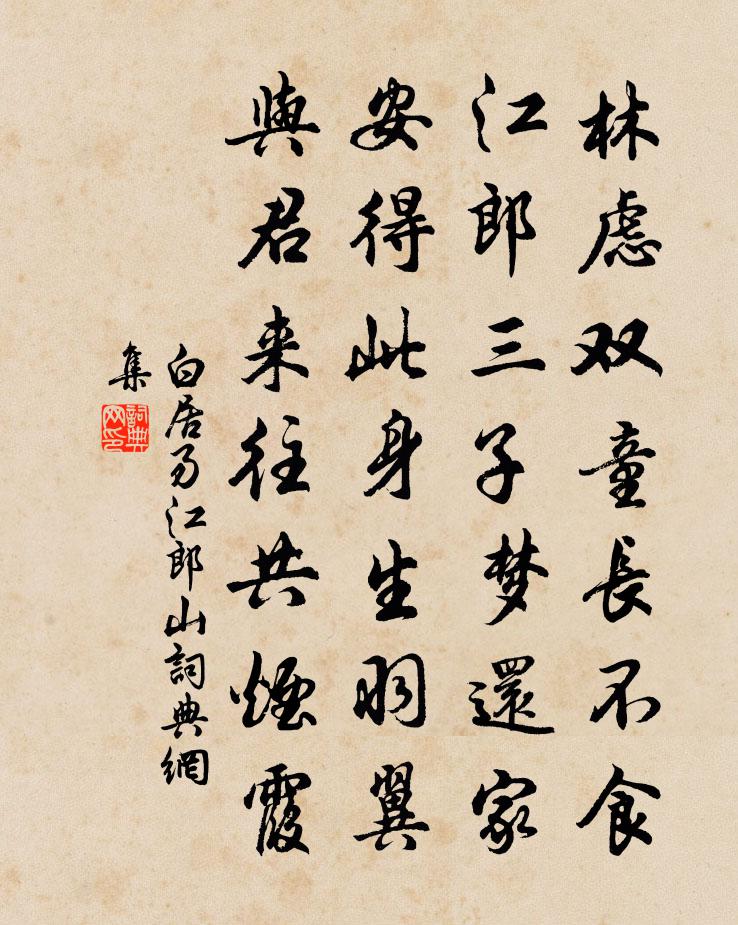 林慮双童長不食
江郎三子梦還家
安得此身生羽翼
與君来往共煙霞
白居易江郎山詞典網
集
詞典网印